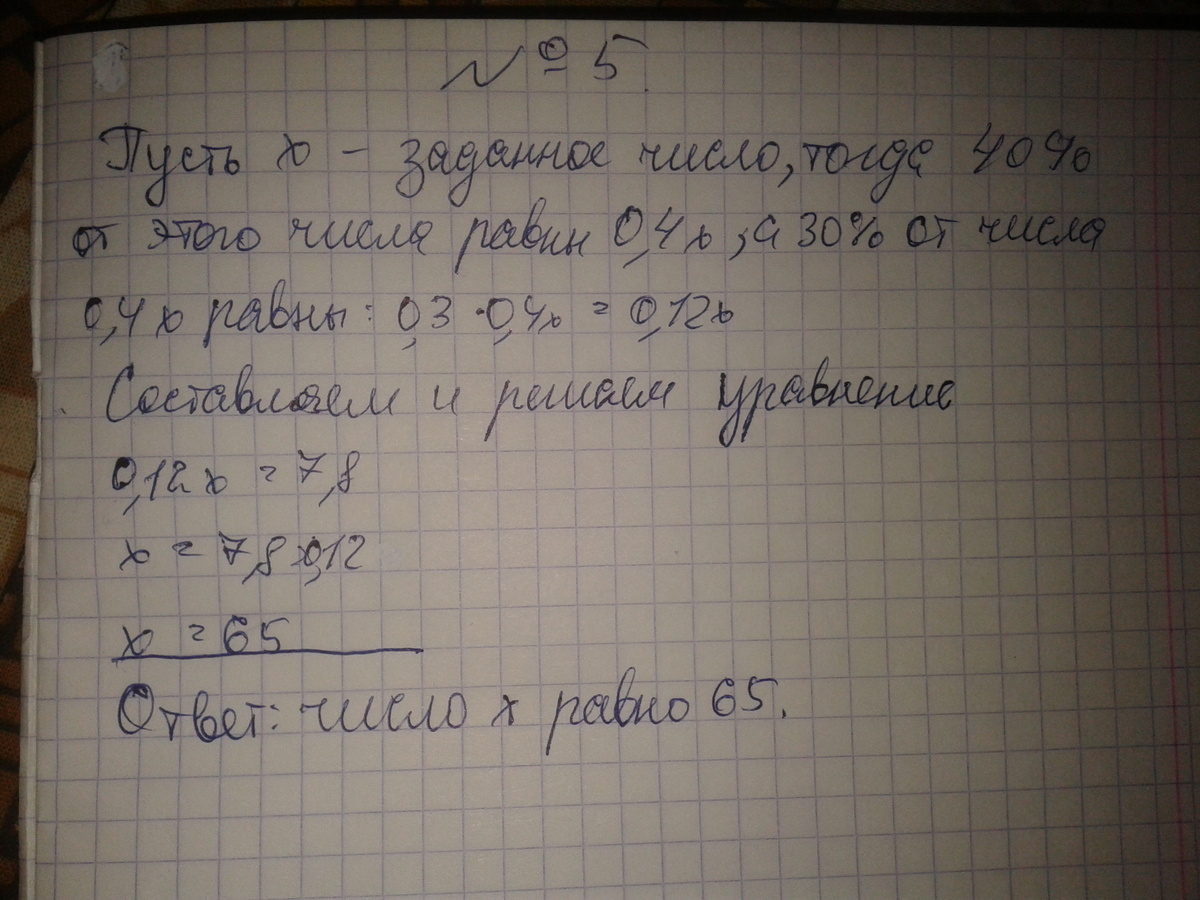 № 5.
Пусть x - заданное число, тогда 40%
от этого числа равны 0,4x, а 30% от числа
0,4x равны: 0,3 · 0,4x = 0,12x
Составляем и решаем уравнение
0,12x = 7,8
x = 7,8 : 0,12
x = 65
Ответ: число x равно 65.